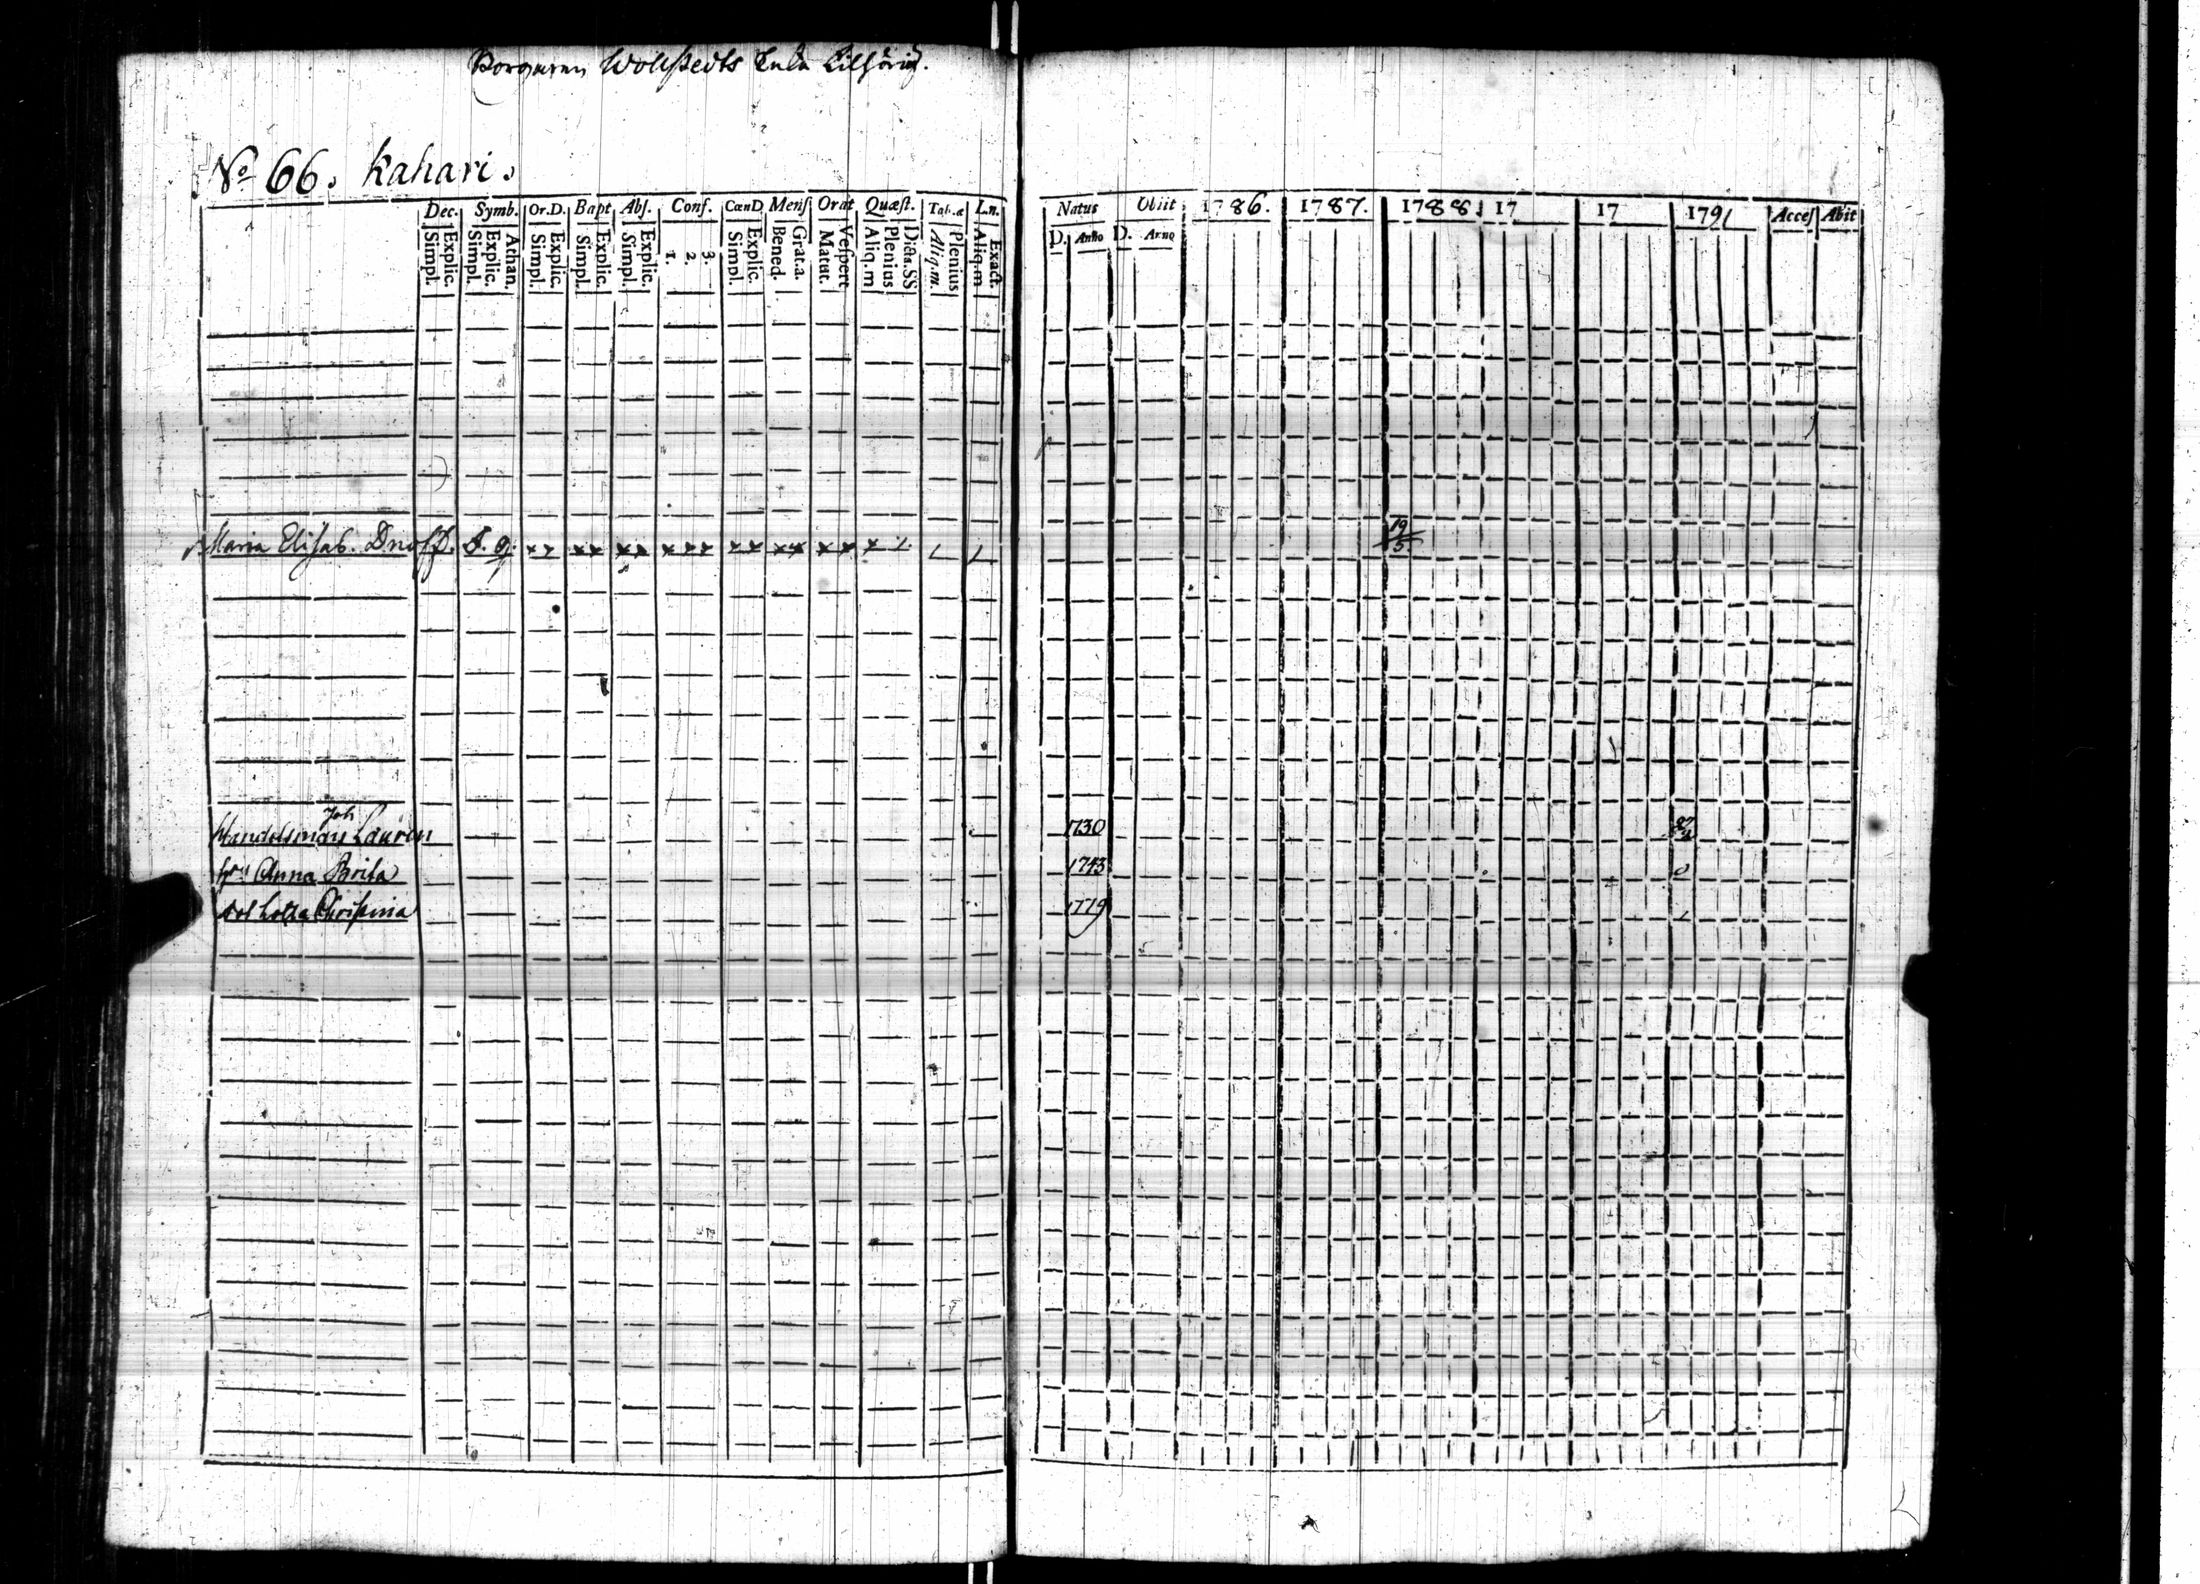 Borgaren Wollstedts Enka tilhörig.
No 66. Kahari.
Dec. Symb. Or.D. Bapt Abs. Conf. CœnD Mens Orat Quæst. Tab.æ L.n.
Simpl. Explic. Simpl. Explic. Athan. Simpl. Explic. Simpl. Explic. Simpl. Explic. 1. 2. 3. Simpl. Explic. Bened. Grat.a. Matut. Vespert Aliq.m Plenius Dicta.SS Aliq.m. Plenius Aliq.m Exact.
Natus Obiit 1786. 1787. 1788. 17 17 1791 Acces Abit
D. Anno D. Anno
Maria Elisab. 19/5
Joh
Handelsman Lauren 1730
hu Anna Brita 1743
dot Lotta Christina 1779